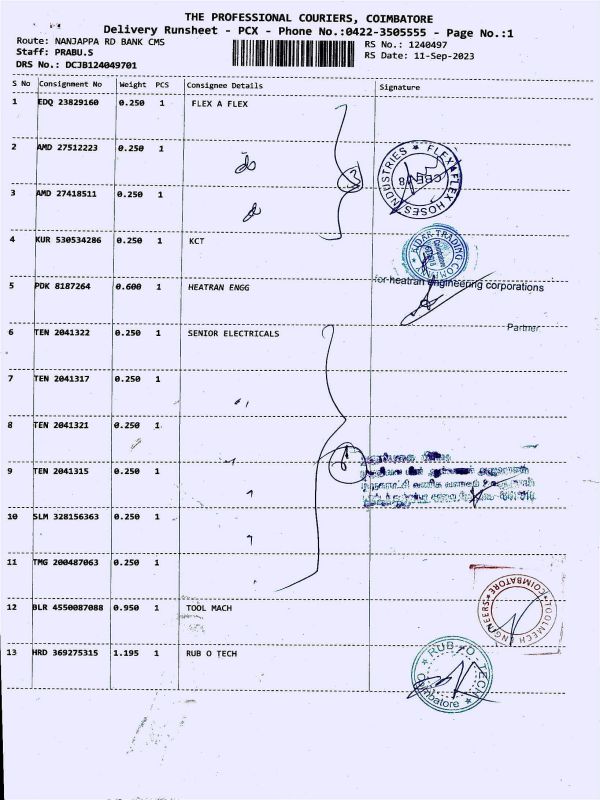 THE PROFESSIONAL COURIERS, COIMBATORE
Delivery Runsheet - PCX - Phone No.:0422-3505555 - Page No.:1
Route: NANJAPPA RD BANK CMS
RS No.: 1240497
Staff: PRABU.S
RS Date: 11-Sep-2023
DRS No.: DCJB124049701
S No Consignment No Weight PCS Consignee Details Signature
1 EDQ 23829160 0.250 1 FLEX A FLEX
2 AMD 27512223 0.250 1
3 AMD 27418511 0.250 1
3
FLEXAFLEX HOSES INDUSTRIES
4 KUR 530534286 0.250 1 KCT
TRADING COMPANY
5 PDK 8187264 0.600 1 HEATRAN ENGG
for heatran engineering corporations
Partner
6 TEN 2041322 0.250 1 SENIOR ELECTRICALS
7 TEN 2041317 0.250 1
8 TEN 2041321 0.250 1
9 TEN 2041315 0.250 1
6
10 SLM 328156363 0.250 1
11 TMG 200487063 0.250 1
12 BLR 4550087088 0.950 1 TOOL MACH
TOOLMECH ENGINEERS COIMBATORE
13 HRD 369275315 1.195 1 RUB O TECH
RUB - O - TECH
Coimbatore